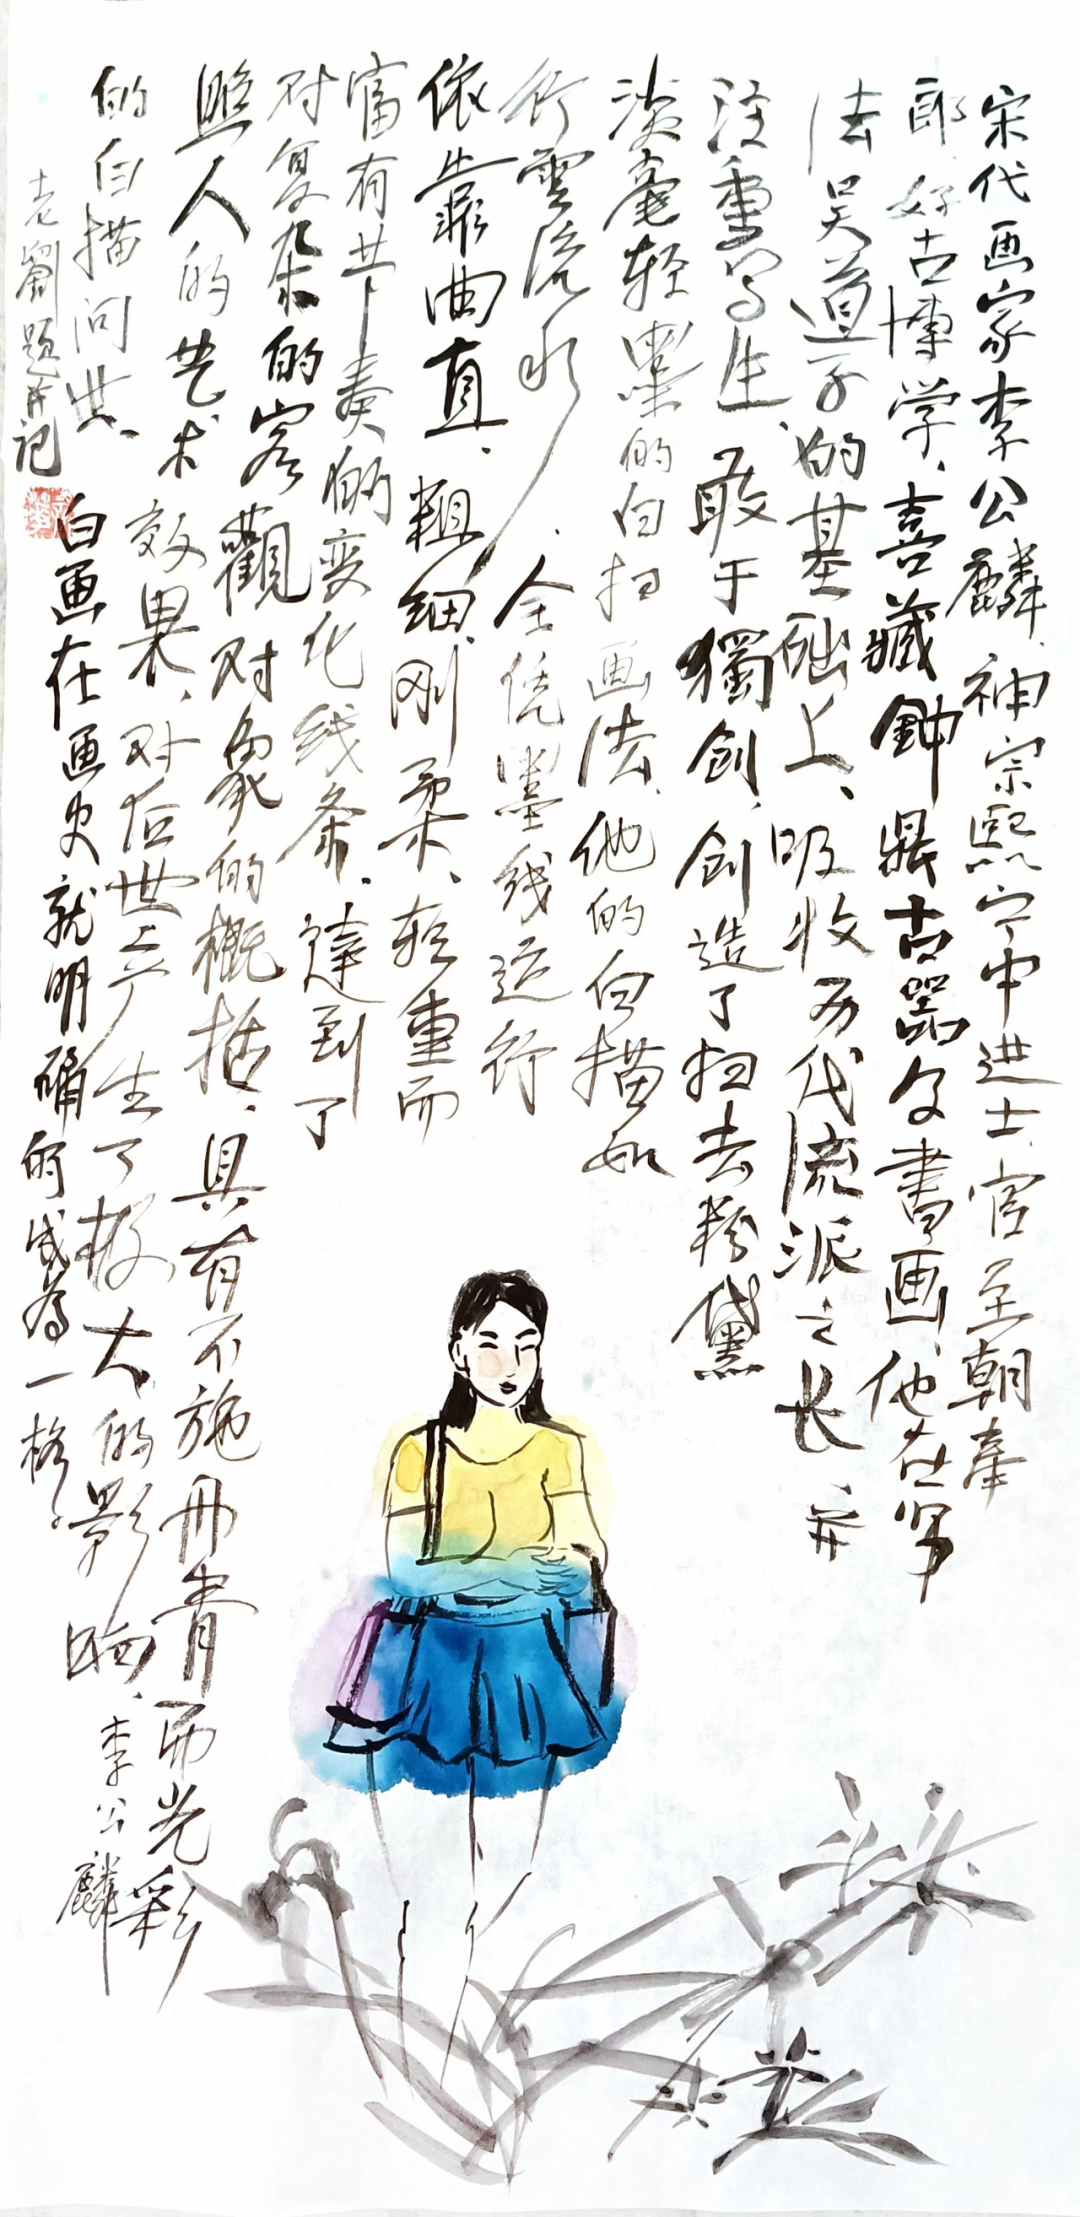 宋代画家李公麟、神宗熙宁中进士、官至朝奉
郎、好古博学、喜藏鈡鼎古器及書画、他在笔
法吴道子的基础上、吸收历代流派之长、并
注重写生、敢于獨创、创造了扫去粉黛
淡毫轻墨的白扫画法、他的白描如
行雲流水、全凭墨线运行
依靠曲直、粗细、刚柔、轻重而
富有节奏的变化线条、達到了
对复杂的客觀对象的概括、具有不施丹青而光彩
照人的艺术效果、对后世产生了极大的影响、李公麟
的白描问世、白画在画史就明确的成為一格。
老劉题并记